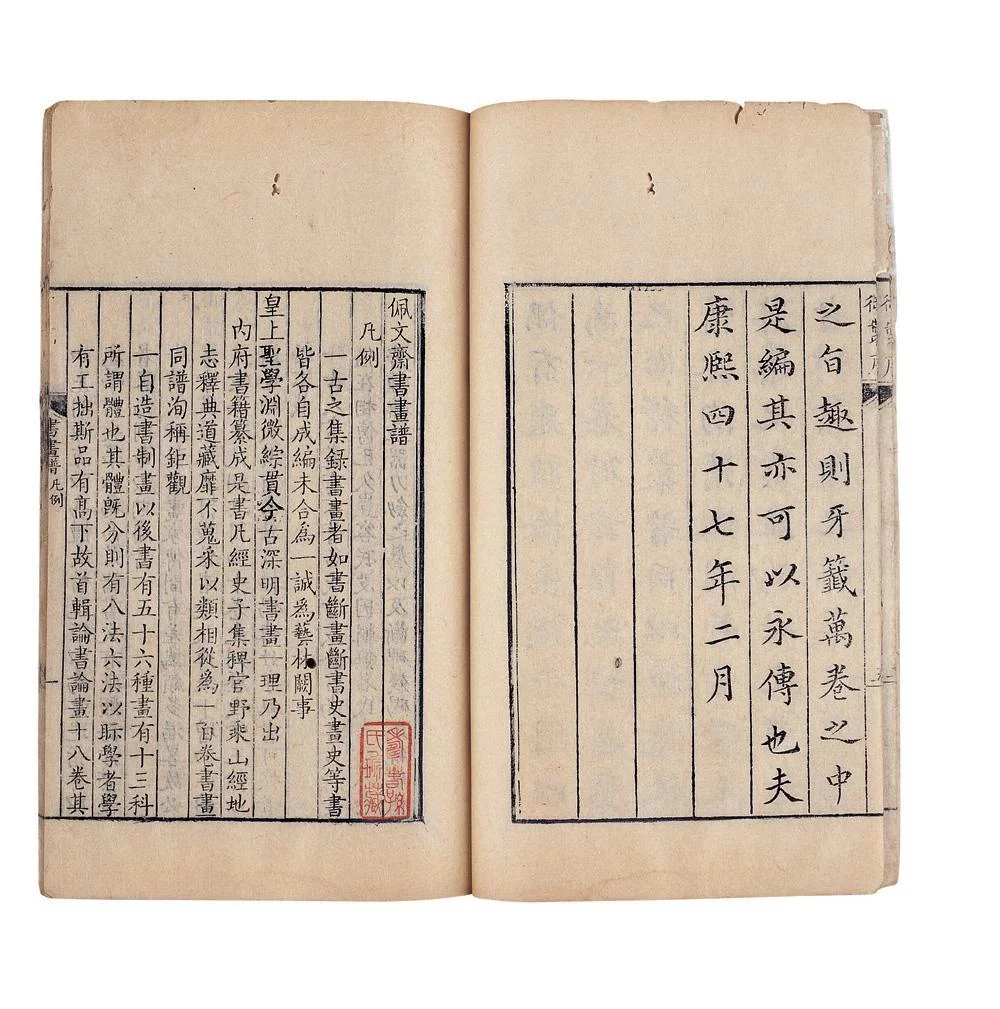 之旨趣則牙籤萬卷之中
是編其亦可以永傳也夫
康熙四十七年二月
佩文齋書畫譜
凡例
一古之集録書畫者如書斷畫斷書史畫史等書
皆各自成編未合爲一誠為藝林闕事
皇上聖學淵微綜貫今古深明書畫妙理乃出
內府書籍纂成是書凡經史子集稗官野乘山經地
志釋典道藏靡不蒐采以類相從為一百卷書畫
同譜洵稱鉅觀
一自造書制畫以後書有五十六種畫有十三科
所謂體也其體旣分則有八法六法以眎學者學
有工拙斯品有髙下故首輯論書論畫十八卷其
書畫譜 凡例
一